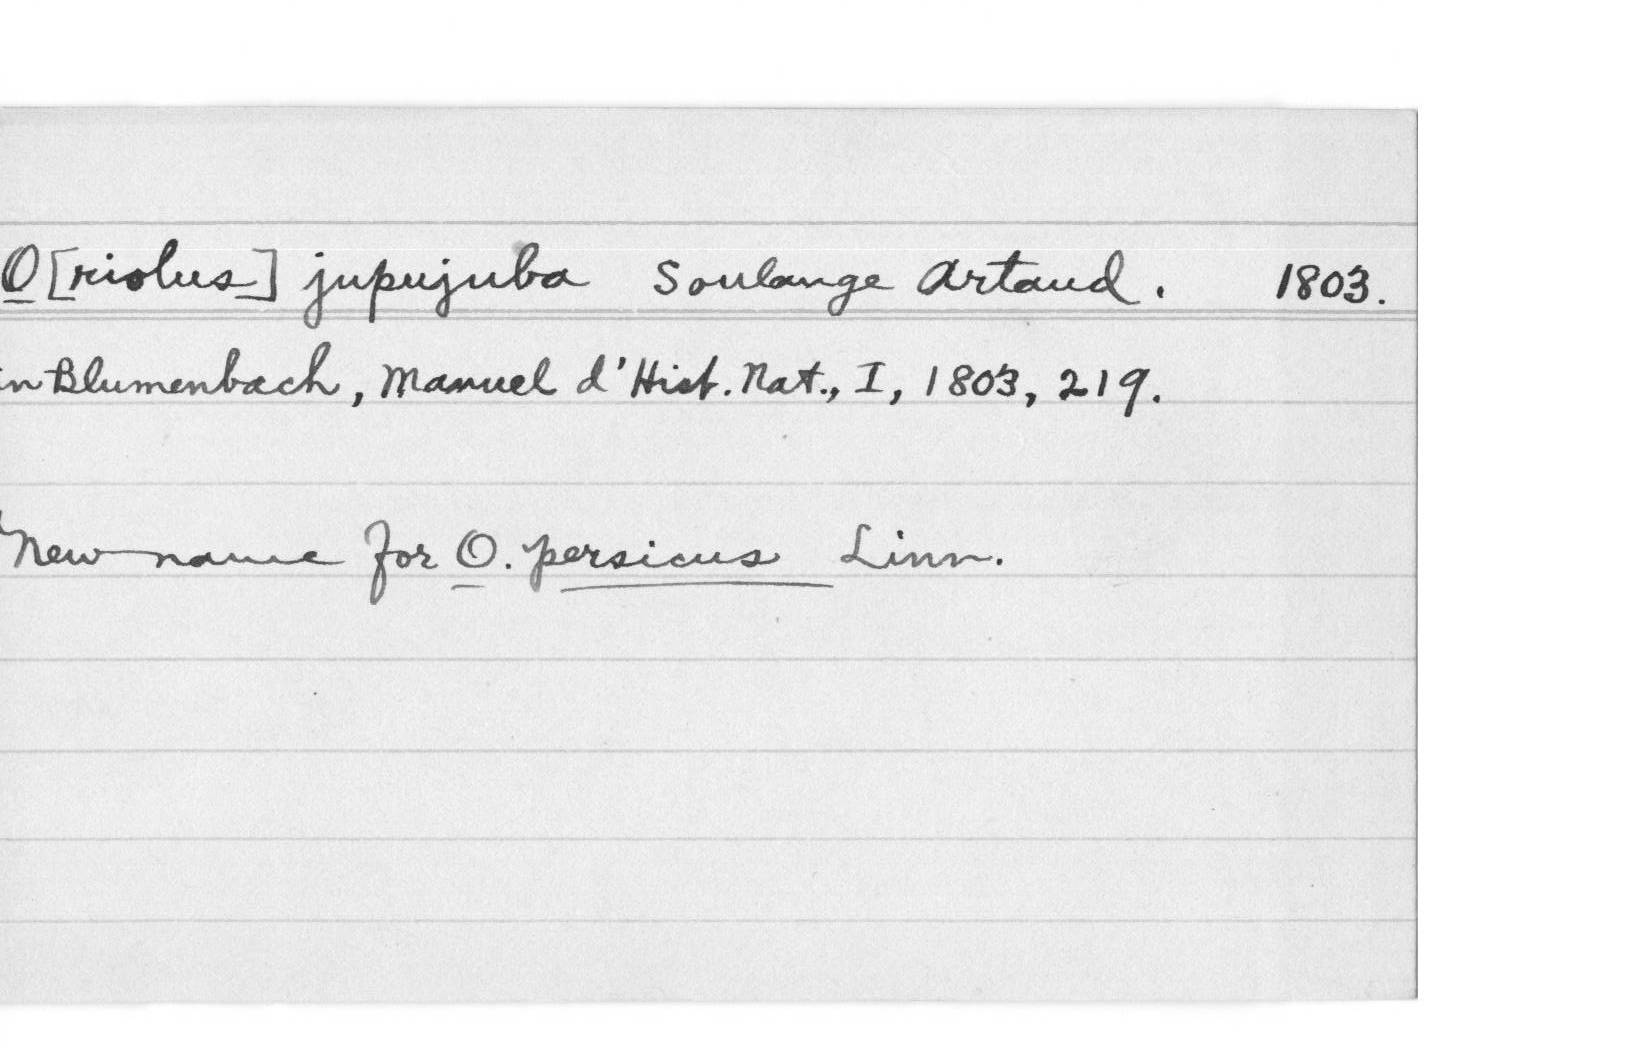 O[riolus] jupujuba Soulange Artaud. 1803.
in Blumenbach, Manuel d'Hist. Nat., I, 1803, 219.
New name for O. persicus Linn.